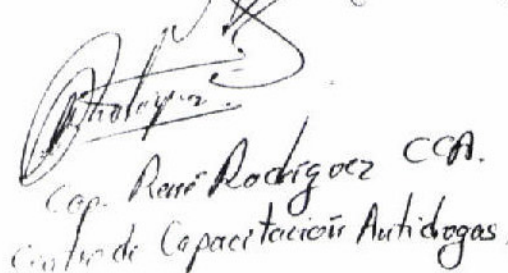 Cap. René Rodrígoez CCA.
Centro di Capacitación Antidrogas.